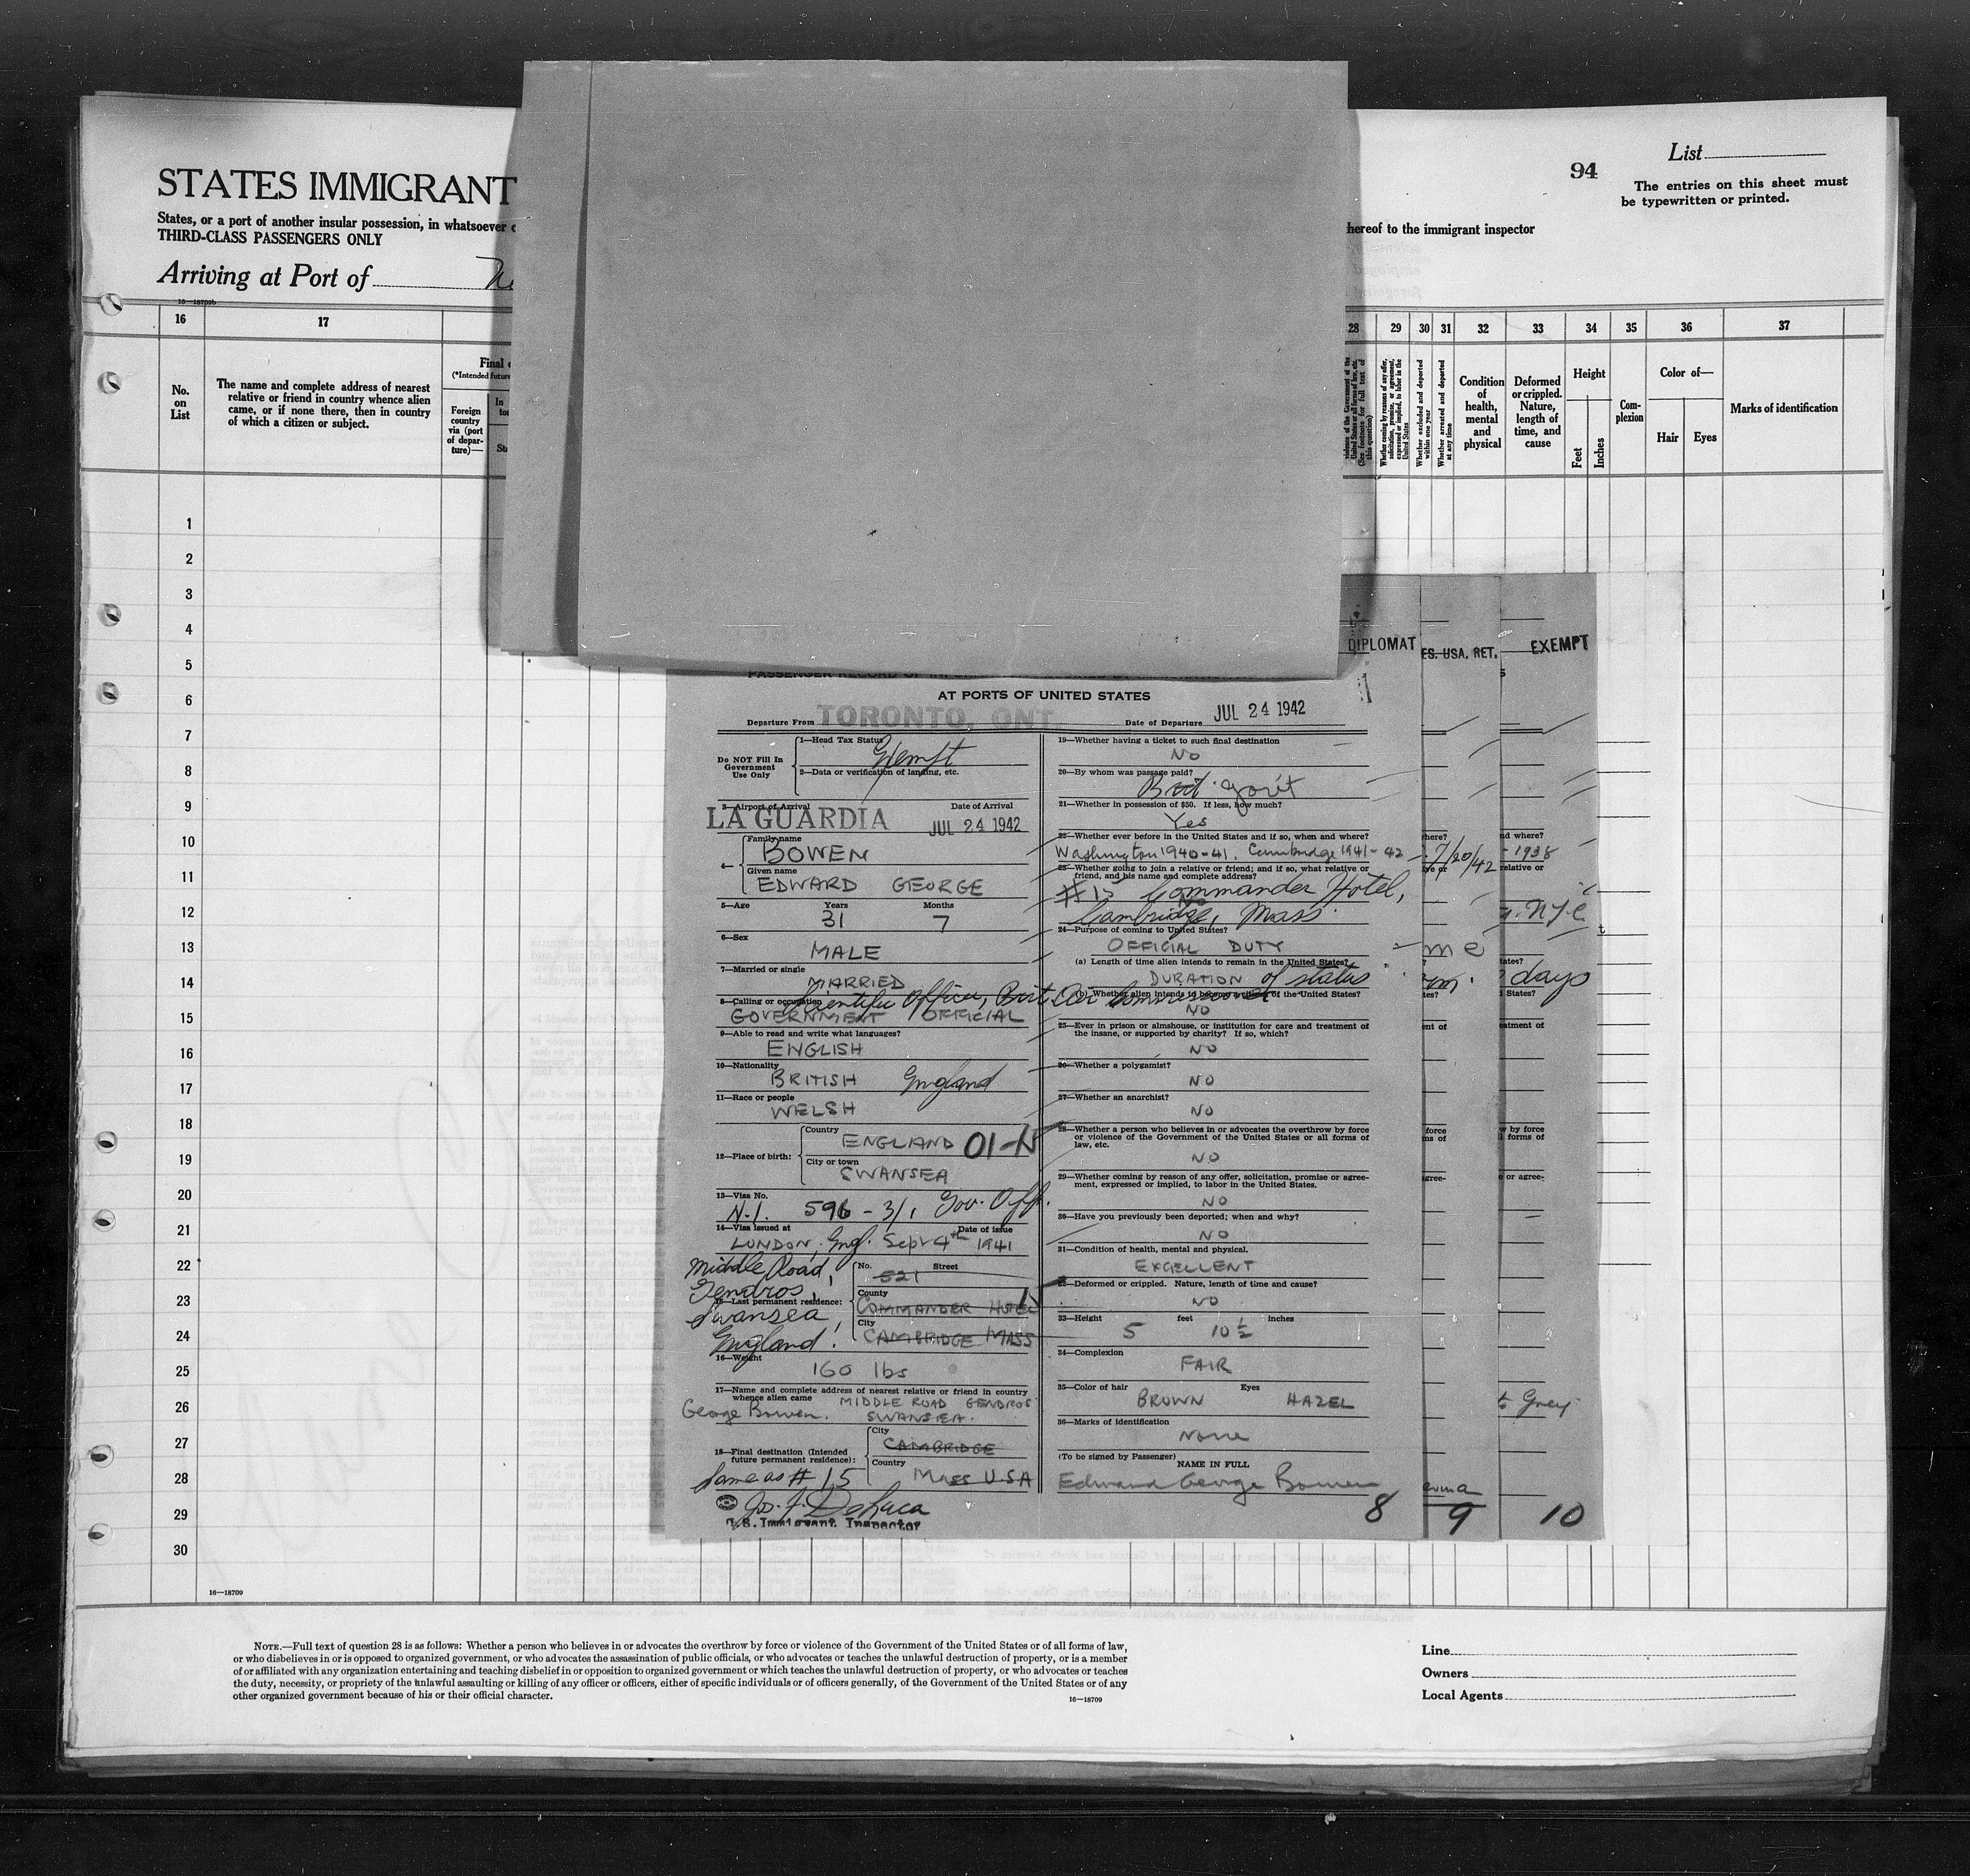 STATES IMMIGRANT
94
List
The entries on this sheet must
be typewritten or printed.
States, or a port of another insular possession, in whatsoever
hereof to the immigrant inspector
THIRD-CLASS PASSENGERS ONLY
Arriving at Port of
16—18709b
16 17 28 29 30 31 32 33 34 35 36 37
No.
on
List
The name and complete address of nearest
relative or friend in country whence alien
came, or if none there, then in country
of which a citizen or subject.
Final
(*Intended future
Foreign
country
via (port
of depar-
ture)—
In
violence of the Government of the
United States or all forms of law, etc.
(See footnote for full text of
this question)
Whether coming by reasons of any offer,
solicitation, promise, or agreement,
expressed or implied, to labor in the
United States
Whether excluded and deported
within one year
Whether arrested and deported
at any time
Condition
of
health,
mental
and
physical
Deformed
or crippled.
Nature,
length of
time, and
cause
Height
Feet
Inches
Com-
plexion
Color of—
Hair
Eyes
Marks of identification
1
2
3
4
5
6
7
8
9
10
11
12
13
14
15
16
17
18
19
20
21
22
23
24
25
26
27
28
29
30
16—18709
DIPLOMAT
ES. USA, RET.
EXEMPT
AT PORTS OF UNITED STATES
Departure From TORONTO, ONT.
Date of Departure JUL 24 1942
Do NOT Fill In
Government
Use Only
1—Head Tax Status
Exempt
2—Data or verification of landing, etc.
3—Airport of Arrival
Date of Arrival
LA GUARDIA JUL 24 1942
4—
Family name
BOWEN
Given name
EDWARD GEORGE
5—Age Years Months
31 7
6—Sex
MALE
7—Married or single
MARRIED
8—Calling or occupation
Scientific Officer, Brit Air Commission
GOVERNMENT OFFICIAL
9—Able to read and write what languages?
ENGLISH
10—Nationality
BRITISH England
11—Race or people
WELSH
12—Place of birth:
Country
ENGLAND 01-N
City or town
SWANSEA
13—Visa No.
N.I. 596 - 31, Gov. Off.
14—Visa issued at Date of issue
LONDON, Eng. Sept 4th 1941
Middle Road,
Gendros,
Swansea,
England.
15—Last permanent residence:
No. Street
521
County
COMMANDER HOTEL
City
CAMBRIDGE MASS
16—Weight
160 lbs
17—Name and complete address of nearest relative or friend in country
whence alien came
MIDDLE ROAD GENDROS
George Bowen. SWANSEA.
18—Final destination (Intended
future permanent residence):
City
CAMBRIDGE
Country
MASS USA
Same as # 15
U.S. Immigrant Inspector
19—Whether having a ticket to such final destination
NO
20—By whom was passage paid?
Brit. Gov't
21—Whether in possession of $50. If less, how much?
Yes
22—Whether ever before in the United States and if so, when and where?
Washington 1940-41. Cambridge 1941-42
23—Whether going to join a relative or friend; and if so, what relative or
friend, and his name and complete address?
No
# 15 Commander Hotel,
Cambridge, Mass.
24—Purpose of coming to United States?
OFFICIAL DUTY
(a) Length of time alien intends to remain in the United States?
DURATION of status
(b) Whether alien intends to become a citizen of the United States?
NO
25—Ever in prison or almshouse, or institution for care and treatment of
the insane, or supported by charity? If so, which?
NO
26—Whether a polygamist?
NO
27—Whether an anarchist?
NO
28—Whether a person who believes in or advocates the overthrow by force
or violence of the Government of the United States or all forms of
law, etc.
NO
29—Whether coming by reason of any offer, solicitation, promise or agree-
ment, expressed or implied, to labor in the United States.
NO
30—Have you previously been deported; when and why?
NO
31—Condition of health, mental and physical.
EXCELLENT
32—Deformed or crippled. Nature, length of time and cause?
NO
33—Height feet inches
5 10½
34—Complexion
FAIR
35—Color of hair Eyes
BROWN HAZEL
36—Marks of identification
None
(To be signed by Passenger)
NAME IN FULL
Edward George Bowen
8
here?
7/20/42
me
9
nd where?
- 1938
relative or
N.Y.C
days
States?
eatment of
w by force
ll forms of
e or agree-
Grey
10
NOTE.—Full text of question 28 is as follows: Whether a person who believes in or advocates the overthrow by force or violence of the Government of the United States or of all forms of law,
or who disbelieves in or is opposed to organized government, or who advocates the assassination of public officials, or who advocates or teaches the unlawful destruction of property, or is a member
of or affiliated with any organization entertaining and teaching disbelief in or opposition to organized government or which teaches the unlawful destruction of property, or who advocates or teaches
the duty, necessity, or propriety of the unlawful assaulting or killing of any officer or officers, either of specific individuals or of officers generally, of the Government of the United States or of any
other organized government because of his or their official character.
16—18709
Line
Owners
Local Agents